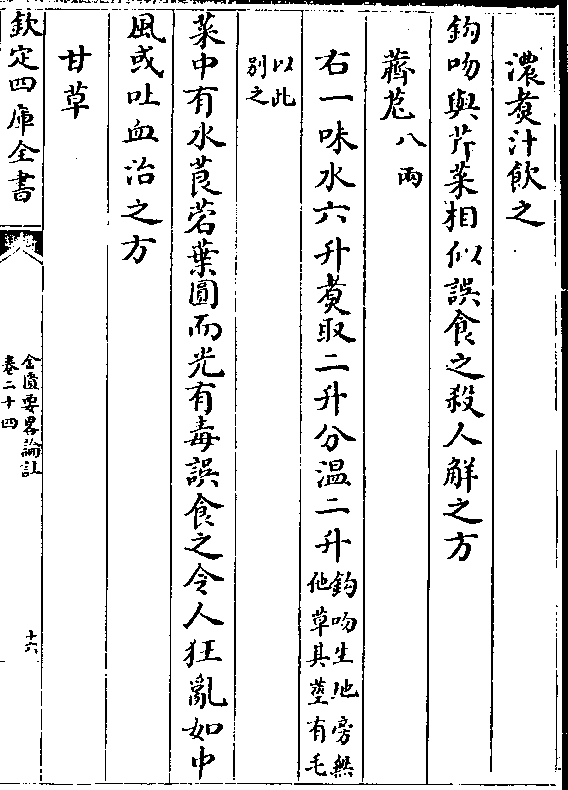 濃煑汁飲之
鈎吻與芹菜相似誤食之殺人觧之方
薺苨八兩
右一味水六升煑取二升分温二升鈎吻生地旁無他草其莖有毛
以此别之
菜中有水莨菪葉圓而光有毒誤食之令人狂亂如中
風或吐血治之方
甘草
欽定四庫全書
金匱要畧論註
卷二十四
十六